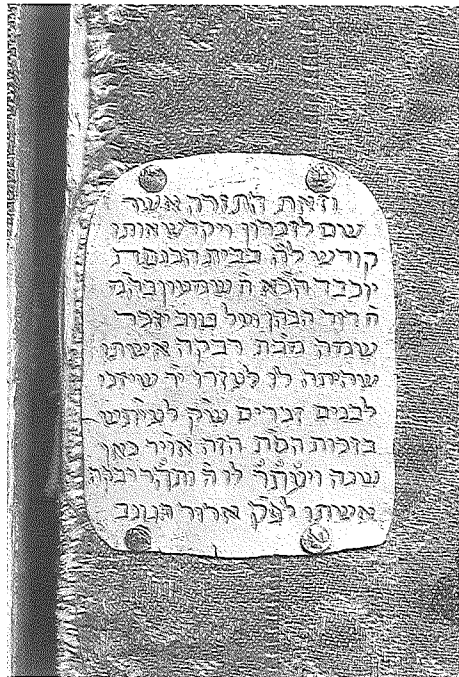 וזאת התורה אשר
שם לזכרון ויקדש אותו
קודש לה בבית הכנסת
שמעון
ה דוד הכהן ועל טוב יזכר
שמה מבת רבקה אשתו
שהיתה לו לעזרו יר שיזכו
לבנים זכרים
בזכות הסת הזה
שנה ויעתר לו ה ותהר רבקה
אשתו לפק ארור הגונב